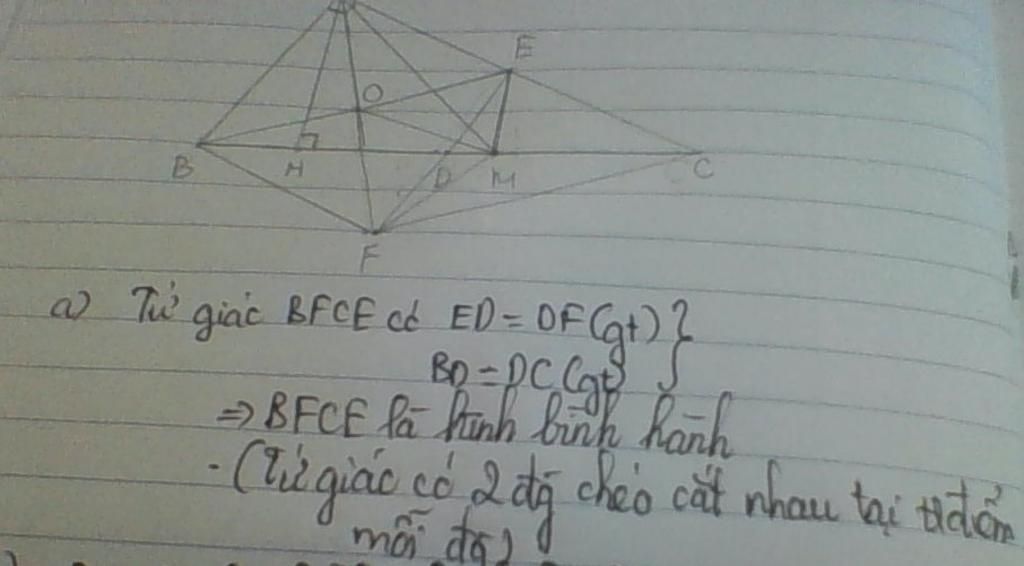 E
O
B H D M C
F
a) Tứ giác BFCE có ED = DF (gt) }
BD = DC (gt)
⇒ BFCE là hình bình hành
- (Tứ giác có 2 đg chéo cắt nhau tại tđiểm
mỗi đg)